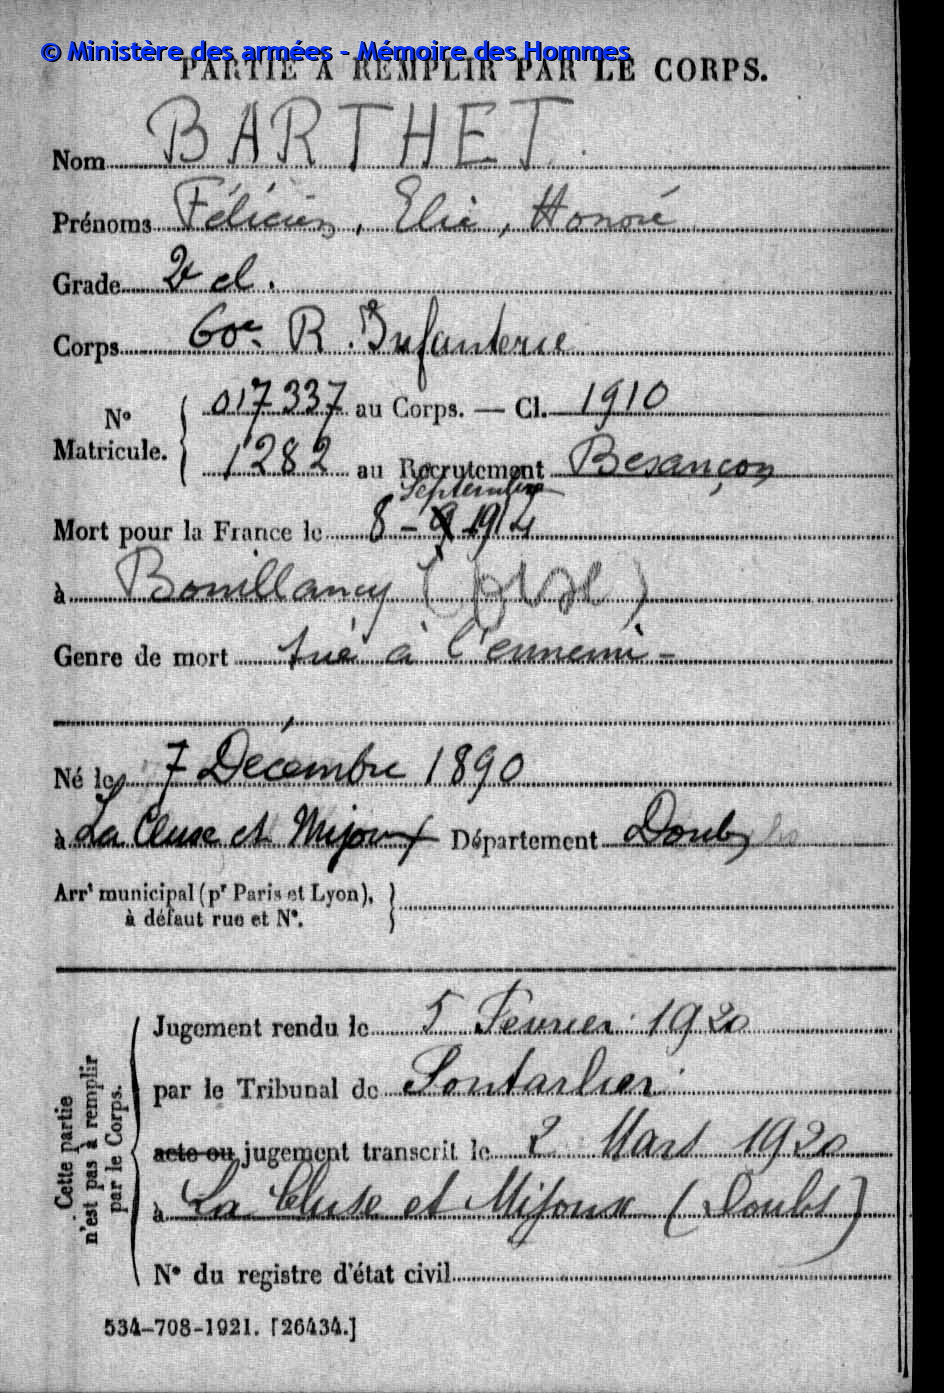 © Ministère des armées - Mémoire des Hommes
PARTIE A REMPLIR PAR LE CORPS.
Nom BARTHET
Prénoms Félicien, Elie, Honoré
Grade 2e cl.
Corps 60e R. Infanterie
No Matricule. 017337 au Corps. — Cl. 1910
1282 au Recrutement Besançon
Septembre
Mort pour la France le 8 - 9 - 1914
à Bouillancy (Oise)
Genre de mort tué à l'ennemi -
Né le 7 Décembre 1890
à La Cluse et Mijoux Département Doubs
Arrt municipal (pr Paris et Lyon),
à défaut rue et No.
Cette partie
n'est pas à remplir
par le Corps.
Jugement rendu le 5 Fevrier 1920
par le Tribunal de Pontarlier
acte ou jugement transcrit le 2 Mars 1920
à La Cluse et Mijoux (Doubs)
No du registre d'état civil
534-708-1921. [26434.]